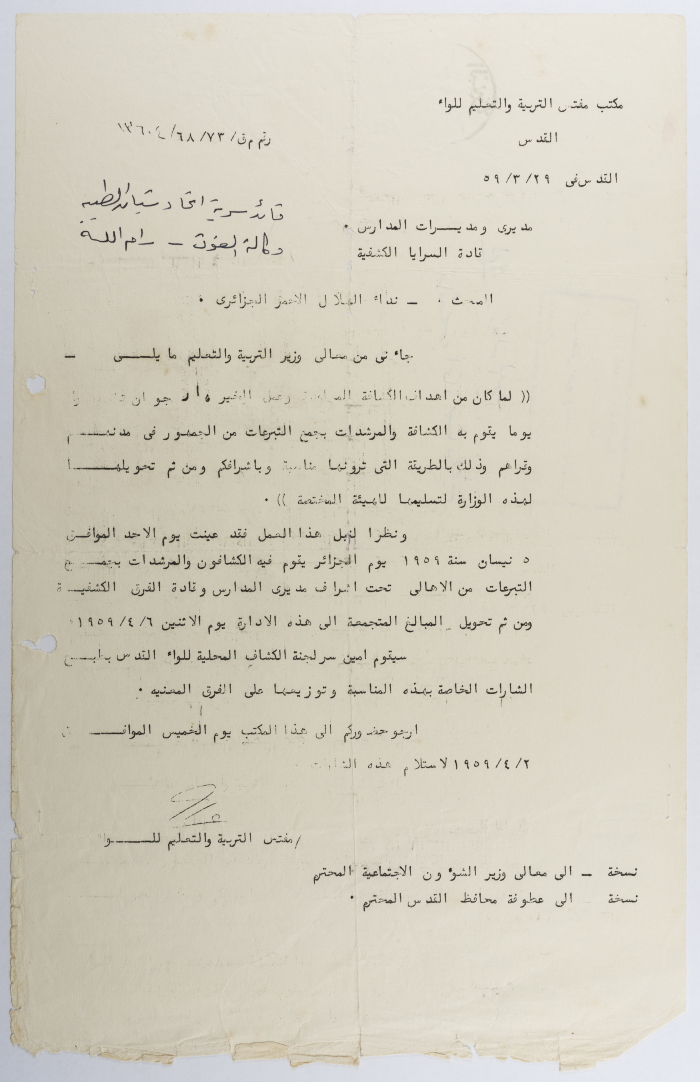 مكتب مفتش التربية والتعليم للواء
القدس
رقم م ق/٦٨/٧٣/
القدس في ٥٩/٣/٢٩
قائد سرية اتحاد شباب الطيبة
وكالة الغوث - رام الله
مديري ومديـــرات المدارس ٠
قادة السرايا الكشفية
البحث ٠ - نداء الهلال الاحمر الجزائري ٠
جاءني من معالي وزير التربية والتعليم ما يلـــــي -
(( لما كان من اهداف الكشافة وعمل الخير جو ان
يوما يقوم به الكشافة والمرشدات بجمع التبرعات من الجمهور في مدنهـــم
وقراهم وذلك بالطريقة التي ترونها مناسبة وباشرافكم ومن ثم تحويلهـــــا
لهذه الوزارة لتسليمها للهيئة المختصة )) ٠
ونظرا لنبل هذا العمل فقد عينت يوم الاحد الموافـــق
٥ نيسان سنة ١٩٥٩ يوم الجزائر يقوم فيه الكشافون والمرشدات بجمـــع
التبرعات من الاهالي تحت اشراف مديري المدارس وقادة الفرق الكشفيـــة
ومن ثم تحويل المبالغ المتجمعة الى هذه الادارة يوم الاثنين ١٩٥٩/٤/٦
سيقوم امين سر لجنة الكشاف المحلية للواء القدس بطبـــع
الشارات الخاصة بهذه المناسبة وتوزيعها على الفرق المعنيه ٠
ارجو حضوركم الى هذا المكتب يوم الخميس الموافـــــق
١٩٥٩/٤/٢ لاستلام هذه
/مفتش التربية والتعليم للـــــواء
نسخة - الى معالي وزير الشوءون الاجتماعية المحترم
نسخة الى عطوفة محافظ القدس المحترم ٠